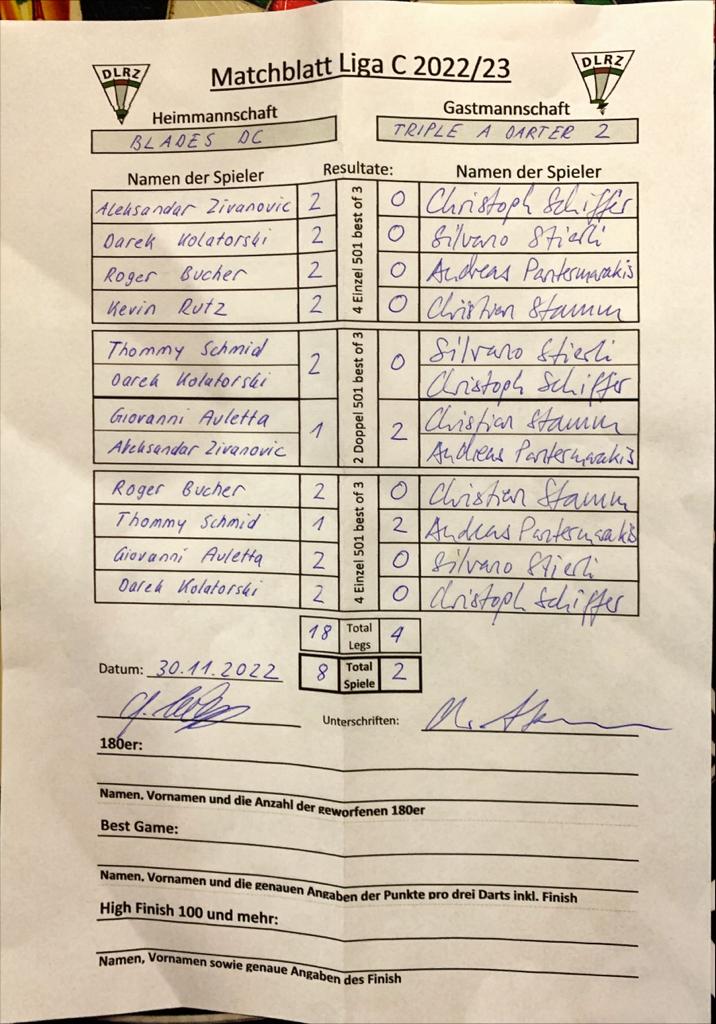 DLRZ Matchblatt Liga C 2022/23 DLRZ
Heimmannschaft Gastmannschaft
BLADES DC TRIPLE A DARTER 2
Namen der Spieler Resultate: Namen der Spieler
4 Einzel 501 best of 3
Aleksandar Zivanovic 2 0 Christoph Schiffer
Darek Kolatorski 2 0 Silvano Stierli
Roger Bucher 2 0 Andreas Pantermarakis
Kevin Rutz 2 0 Christian Stamm
2 Doppel 501 best of 3
Thommy Schmid 2 0 Silvano Stierli
Darek Kolatorski Christoph Schiffer
Giovanni Auletta 1 2 Christian Stamm
Aleksandar Zivanovic Andreas Pantermarakis
4 Einzel 501 best of 3
Roger Bucher 2 0 Christian Stamm
Thommy Schmid 1 2 Andreas Pantermarakis
Giovanni Auletta 2 0 Silvano Stierli
Darek Kolatorski 2 0 Christoph Schiffer
18 Total Legs 4
Datum: 30.11.2022 8 Total Spiele 2
Unterschriften:
180er:
Namen, Vornamen und die Anzahl der geworfenen 180er
Best Game:
Namen, Vornamen und die genauen Angaben der Punkte pro drei Darts inkl. Finish
High Finish 100 und mehr:
Namen, Vornamen sowie genaue Angaben des Finish